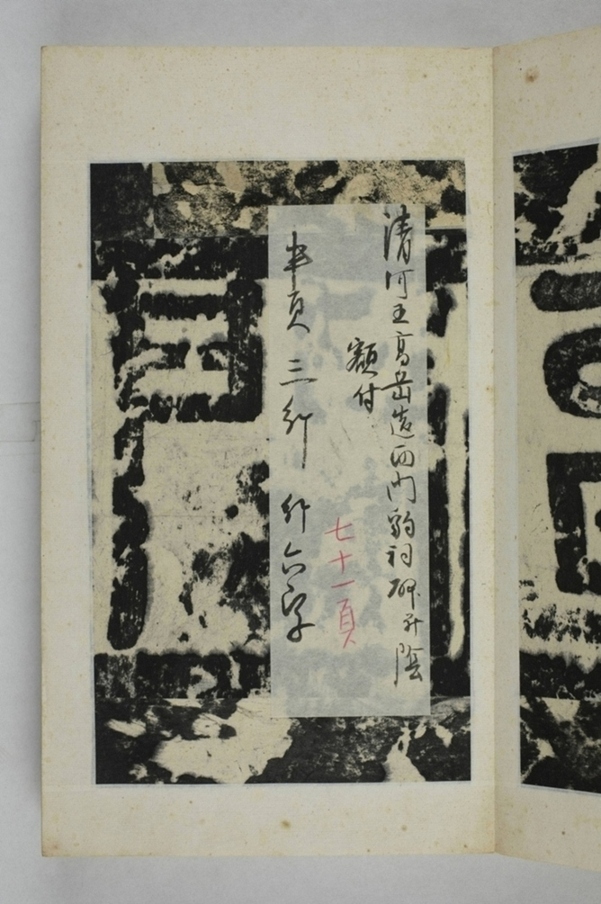 清河王高岳造西門豹祠碑并陰
額付
七十一頁
半頁三行行六字